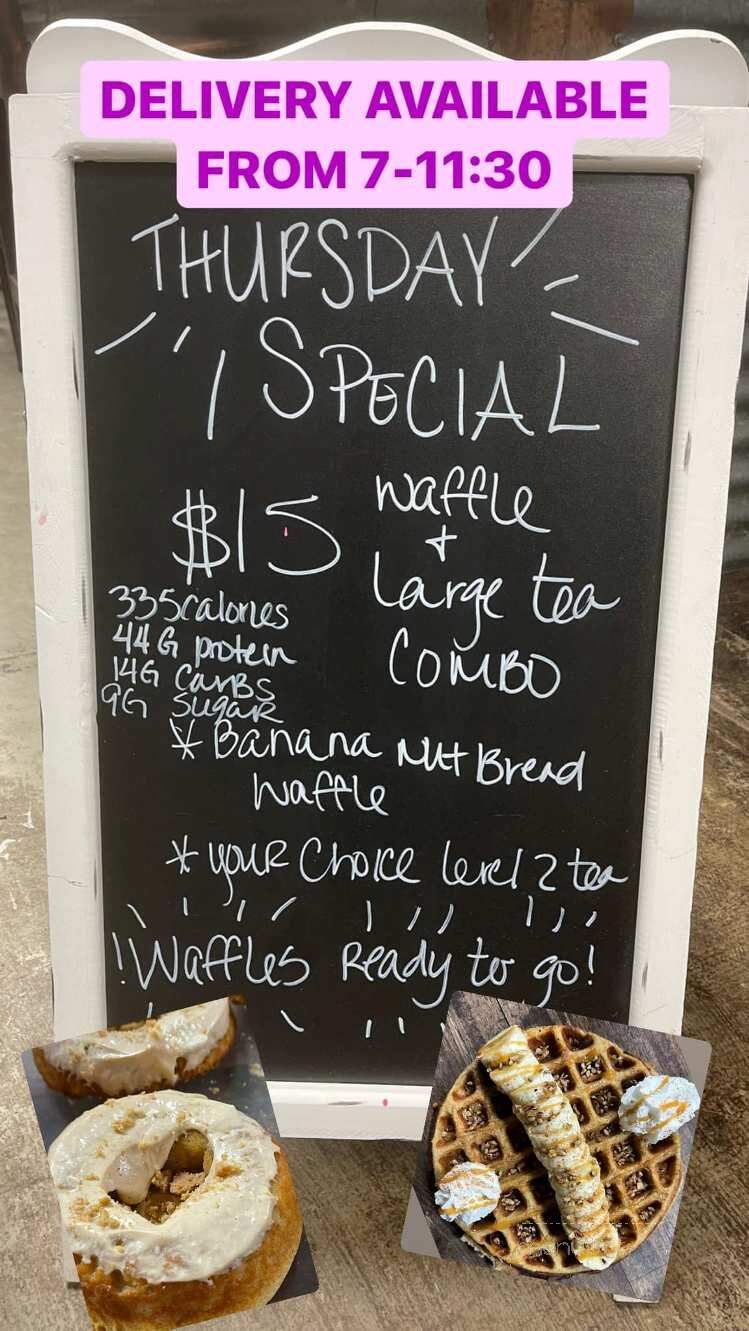 DELIVERY AVAILABLE
FROM 7-11:30
THURSDAY
SPECIAL
$15
waffle
+
Large tea
COMBO
335calories
44G protein
14G Carbs
9G Sugar
* Banana Nut Bread
Waffle
* your Choice level 2 tea
!Waffles Ready to go!